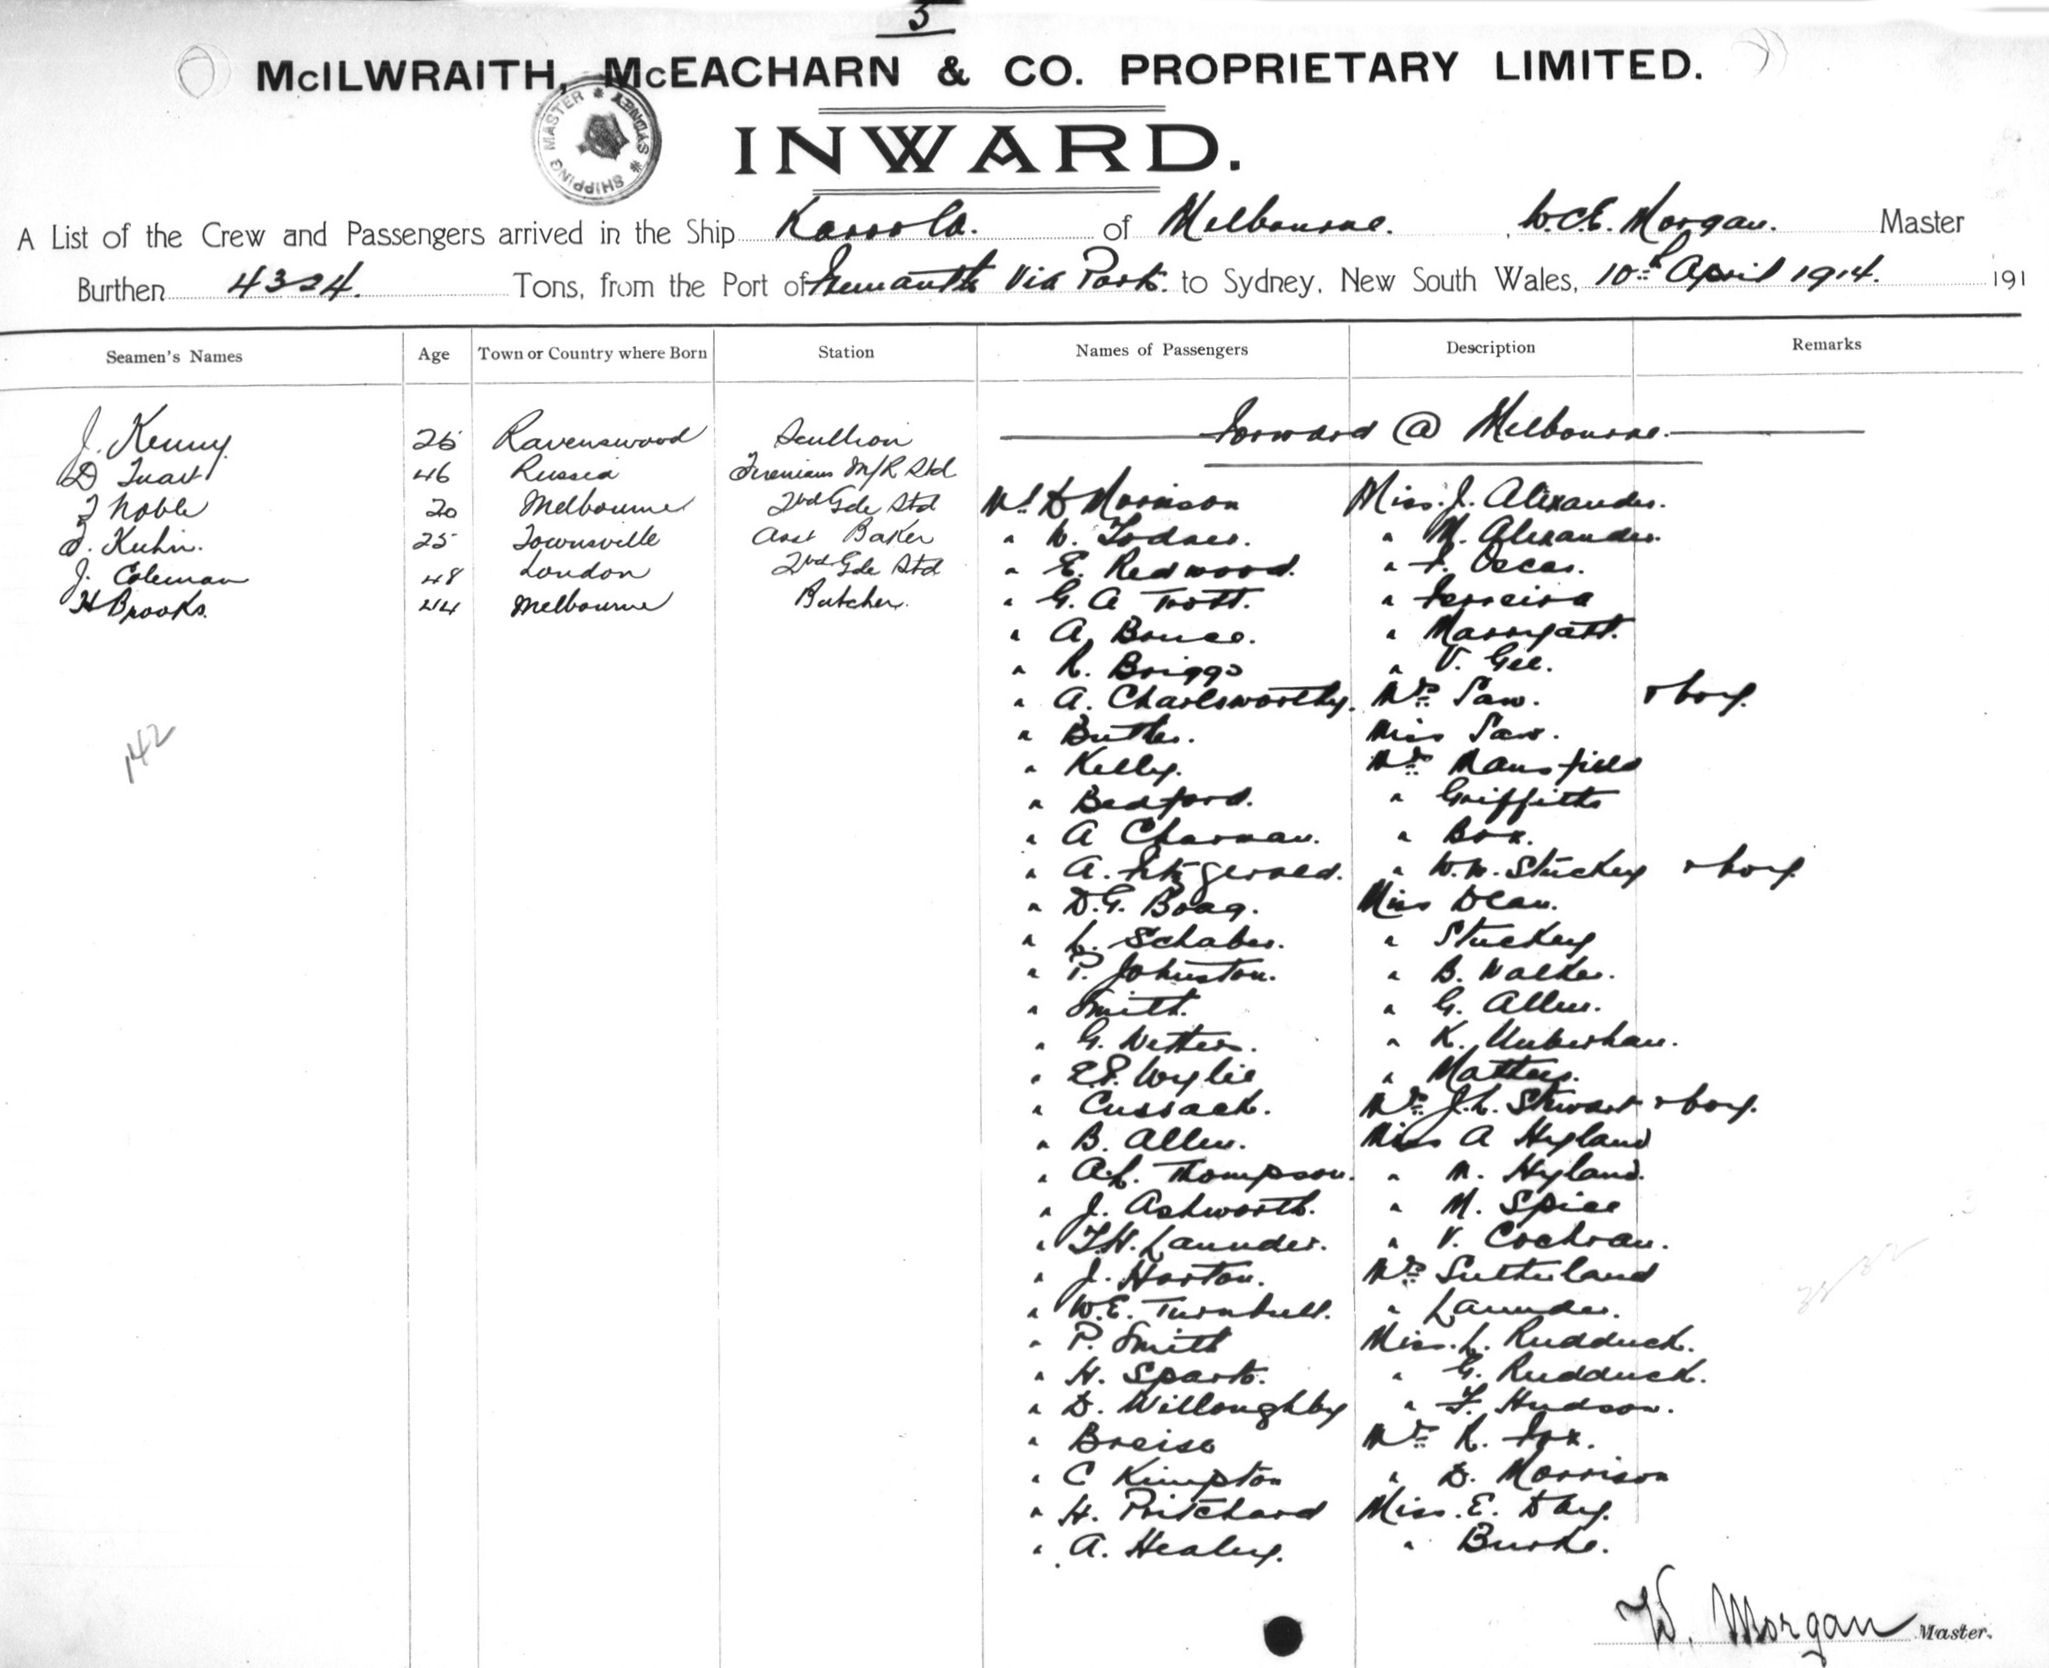 3
McILWRAITH, McEACHARN & CO. PROPRIETARY LIMITED.
SHIPPING MASTER * SYDNEY *
INWARD.
A List of the Crew and Passengers arrived in the Ship Karoola. of Melbourne. , W.C.E. Morgan. Master
Burthen 4324. Tons, from the Port of Fremantle Via Ports. to Sydney, New South Wales, 10th April 1914. 191
Seamen's Names Age Town or Country where Born Station Names of Passengers Description Remarks
Forward @ Melbourne.
J. Kenny. 26 Ravenswood Scullion
D 46 Russia M/R Std
Noble 20 Melbourne 2nd Gde Std Mr D Morrison Miss. J. Alexander.
Kuhn. 25 Townsville Asst Baker " W. " M. Alexander.
J. Coleman 48 London 2nd Gde Std " E. Redwood. " Oscar.
H Brooks. 44 Melbourne Butcher. " G. A Trott. " Ferreira
" A. Bruce. " Marryatt.
" R. Briggs " V. Gee.
" A. Charlsworthy. Mrs Saw. & boy.
" Butler. Miss Saw.
" Kelly. Mrs Mansfield
142
" Bedford. " Griffiths
" A Charman. " Box.
" A. Fitzgerald. " W.W. Stuckey & boy
" D.G. Boag. Miss Dean.
" L. Schaber. " Stuckey
" P. Johnston. " B. Walker.
" Smith. " G. Allen.
" G. Wetters. " K. Unkenhau.
" E.P. Wylie " Matters.
" Cussack. Mrs J.L. Stewart & boy.
" B. Allen. Miss A Hyland
" A.L. Thompson. " M. Hyland.
" J. Ashworth. " M. Spice
" T.H. Launder. " V. Cochran.
" J. Horton. Mrs Sutherland
" W.E. Turnbull. " Launder.
" P. Smith Miss. L. Rudduck.
" H. Spark. " G. Rudduck.
" D. Willoughby " F. Hudson.
" Breise Mrs R. Fox.
" C Kimpton " D. Morrison
" H. Pritchard Miss. E. Day.
" A. Healey. " Burke.
W. Morgan Master.